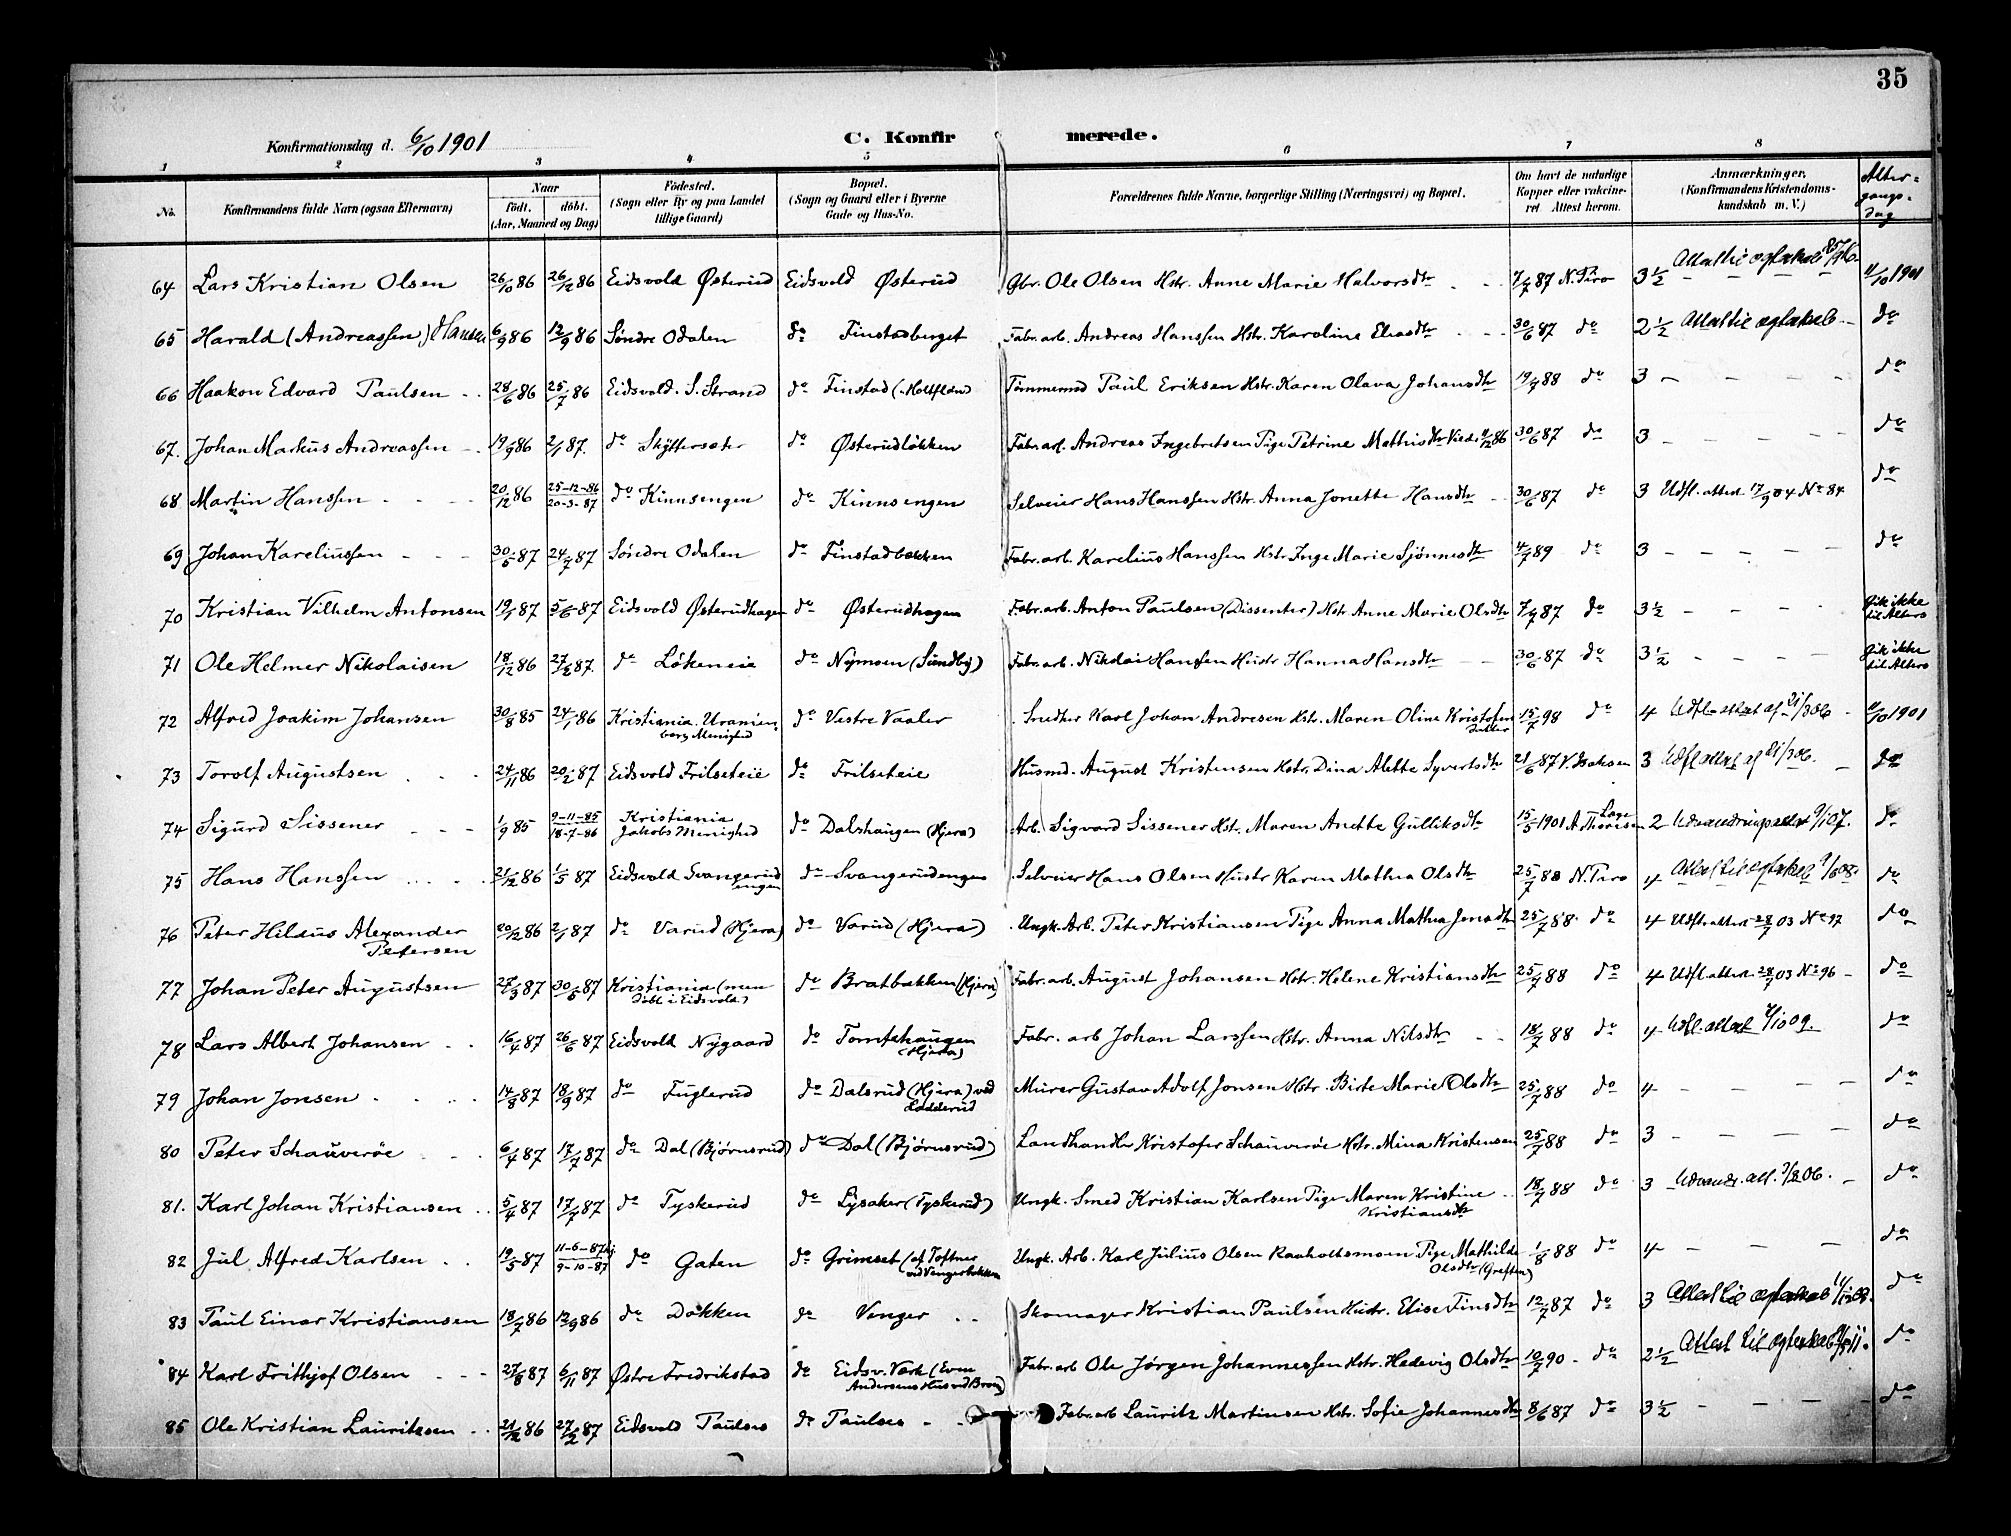 35
Konfirmationsdag d. 6/10 1901 C. Konfir merede.
1 2 3 4 5 6 7 8
No. Konfirmandens fulde Navn (ogsaa Efternavn) Naar født. døbt. (Aar, Maaned og Dag) Fødested. (Sogn eller By og paa Landet tillige Gaard) Bopæl. (Sogn og Gaard eller i Byerne Gade og Hus-No. Forældrenes fulde Navne, borgerlige Stilling (Næringsvei) og Bopæl. Om havt de naturlige Kopper eller vakcineret. Attest herom. Anmærkninger. (Konfirmandens Kristendomskundskab m. V.) Altergangsdag
64 Lars Kristian Olsen 26/10 86 26/12 86 Eidsvold Østerud Eidsvold Østerud Gbr. Ole Olsen Hstr. Anne Marie Halvorsdtr 7/7 87 N. Piro 3½ Attest til ægteskab 11/10 1901
65 Harald (Andreassen) Hansen 6/9 86 12/9 86 Søndre Odalen do Finstadberget Fabr. arb. Andreas Hanssen Hstr. Karoline Eliasdtr 30/6 87 do 2½ Attest til ægteskab - do
66 Haakon Edvard Paulsen 28/6 86 25/7 86 Eidsvold. S. Strand do Finstad Tømmermd Paul Eriksen Hstr. Karen Olava Johansdtr 19/7 88 do 3 - - - - do
67. Johan Markus Andreassen 19/9 86 2/1 87. do Skyttersæter do Østerudløkken Fabr. arb. Andreas Ingebretsen Pige Petrine Mathisdtr Viede 11/12 86 30/6 87 do 3 - - - - do
68 Martin Hanssen 20/12 86 25-12-86 20-3-87 do Kinnsengen do Kinnsengen Selveier Hans Hanssen Hstr. Anna Jonette Hansdtr 30/6 87 do 3 Udfl. attest 17/9 04 No 84 do
69 Johan Kareliussen 30/5 87 24/7 87 Søndre Odalen do Finstadbakken Fabr. arb. Karelius Hanssen Hstr Inge Marie Sjønnesdtr 4/7 89 do 3 - - - - - do
70 Kristian Vilhelm Antonsen 19/1 87 5/6 87 Eidsvold Østerudhagen do Østerudhagen Fabr. arb. Anton Paulsen (Dissenter) Hstr Anne Marie Olsdtr 7/7 87 do 3½ - - - - Gik ikke til Alters
71 Ole Helmer Nikolaisen 18/12 86 27/2 87. do Løkeneie do Nymoen (Sundby) Fabr. arb. Nikolai Hanssen Hustr Hanna Hansdtr 30/6 87 do 3½ - - - - Gik ikke til Alters
72 Alfred Joakim Johansen 30/8 85 24/1 86 Kristiania. Uranienborg Menighed do Vestre Vaaler Snedker Karl Johan Andresen Hstr. Maren Oline Kristofersdatter 15/7 98 do 4 Udfl. attest af 21/3 06 11/10 1901
73 Torolf Augustsen 24/11 86 20/2 87 Eidsvold Frilseteie do Frilseteie Husmd. August Kristensen Hstr. Dina Alette Syvertsdtr 21/6 87 V. Isaksen 3 Udfl attest af 21/3 06. - do
74 Sigurd Sissener 1/9 85 9-11-85 18-7-86 Kristiania Jakobs Menighed do Dalshaugen (Hjera) Arb. Sigvard Sissener Hstr. Maren Anette Gulliksdtr 15/5 1901 Læge A. Thoresen 2 Udvandringsattest 9/1 07. do
75 Hans Hanssen 21/12 86 1/5 87 Eidsvold Svangerudengen do Svangerudengen Selveier Hans Olsen Hustr Karen Mathea Olsdtr 25/7 88 N. Piro 4 Attest til ægteskab do
76 Peter Hilaus Alexander Petersen 20/12 86 2/1 87 do Varud (Hjera) do Varud (Hjera) Ungk. Arb. Peter Kristiansen Pige Anna Mathea Jensdtr 25/7 88 do 4 Udfl. attest 28/7 03 No 97 do
77 Johan Peter Augustsen 27/3 87 30/5 87 Kristiania (men døbt i Eidsvold) do Bratbakken (Hjera) Fabr. arb. August Johansen Hstr. Helene Kristiansdtr 25/7 88 do 4 Udfl. attest 28/7 03 No 96 - do
78 Lars Albert Johansen 16/4 87 26/6 87 Eidsvold Nygaard do Tomtehaugen (Hjera) Fabr. arb Johan Larssen Hstr. Anna Nilsdtr 18/7 88 do 4 Udfl. attest do
79 Johan Jonsen 14/8 87 18/9 87 do Fuglerud do Dalsrud (Hjera) ved Ladderud Murer Gustav Adolf Jonsen Hstr. Birte Marie Olsdtr 25/7 88 do 4 - - - - do
80 Peter Schauverøe 6/4 87 17/7 87 do Dal (Bjørnsrud) do Dal (Bjørnsrud) Landhandler Kristofer Schauverøe Hstr. Mina Kristensen 25/7 88 do 3 - - - - do
81. Karl Johan Kristiansen 5/4 87 17/7 87 do Tyskerud do Lysaker (Tyskerud) Ungk. Smed Kristian Karlsen Pige Maren Kristine Kristiansdtr 18/7 88 do 3 Udvandr. att. - do
82 Jul Alfred Karlsen 19/5 87 11-6-87 hj 9-10-87 do Gaten do Grimset (af Toftner ved Vengerbakken Ungk. Arb. Karl Julius Olsen Raaholtmoen Pige Mathilde Olsdtr (Greften) 1/8 88 do 4 - - - do
83 Paul Einar Kristiansen 18/7 86 12/9 86 do Dokken do Venger Skomager Kristian Paulsen Hustr. Elise Finsdtr 12/7 87 do 3 Attest til ægteskab do
84 Karl Frithjof Olsen 27/8 87 6/11 87 Østre Fredrikstad do Eidsv. Værk (Even Andersens Hus ved Broen) Fabr. arb Ole Jørgen Johannessen Hstr. Hedevig Olsdtr 10/7 90 do 2½ Attest til ægteskab do
85 Ole Kristian Lauritzsen 21/12 86 27/2 87 Eidsvold Paulsæs do Paulsæs Fabr. arb Lauritz Martinsen Hstr. Sofie Johannesdtr 8/6 87 do 3½ - - - - do